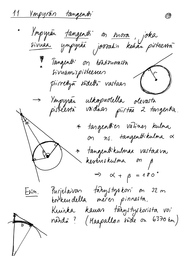 11 Ympyrän tangentti
• Ympyrän tangentti on suora, joka
sivuaa ympyrää jossakin kehän pisteessä
! Tangentti on kohtisuorassa
sivuamispisteeseen
piirrettyä sädettä vastaan
→ Ympyrän ulkopuolella olevasta
pisteestä voidaan piirtää 2 tangenttia
• tangenttien välinen kulma
on ns. tangenttikulma α
• tangenttikulmaa vastaava
keskuskulma on β
→ α + β = 180°
Esim. Purjelaivan tähystyskori on 22 m
korkeudella meren pinnasta.
Kuinka kauas tähystyskorista voi
nähdä? (Maapallon säde on 6370 km)